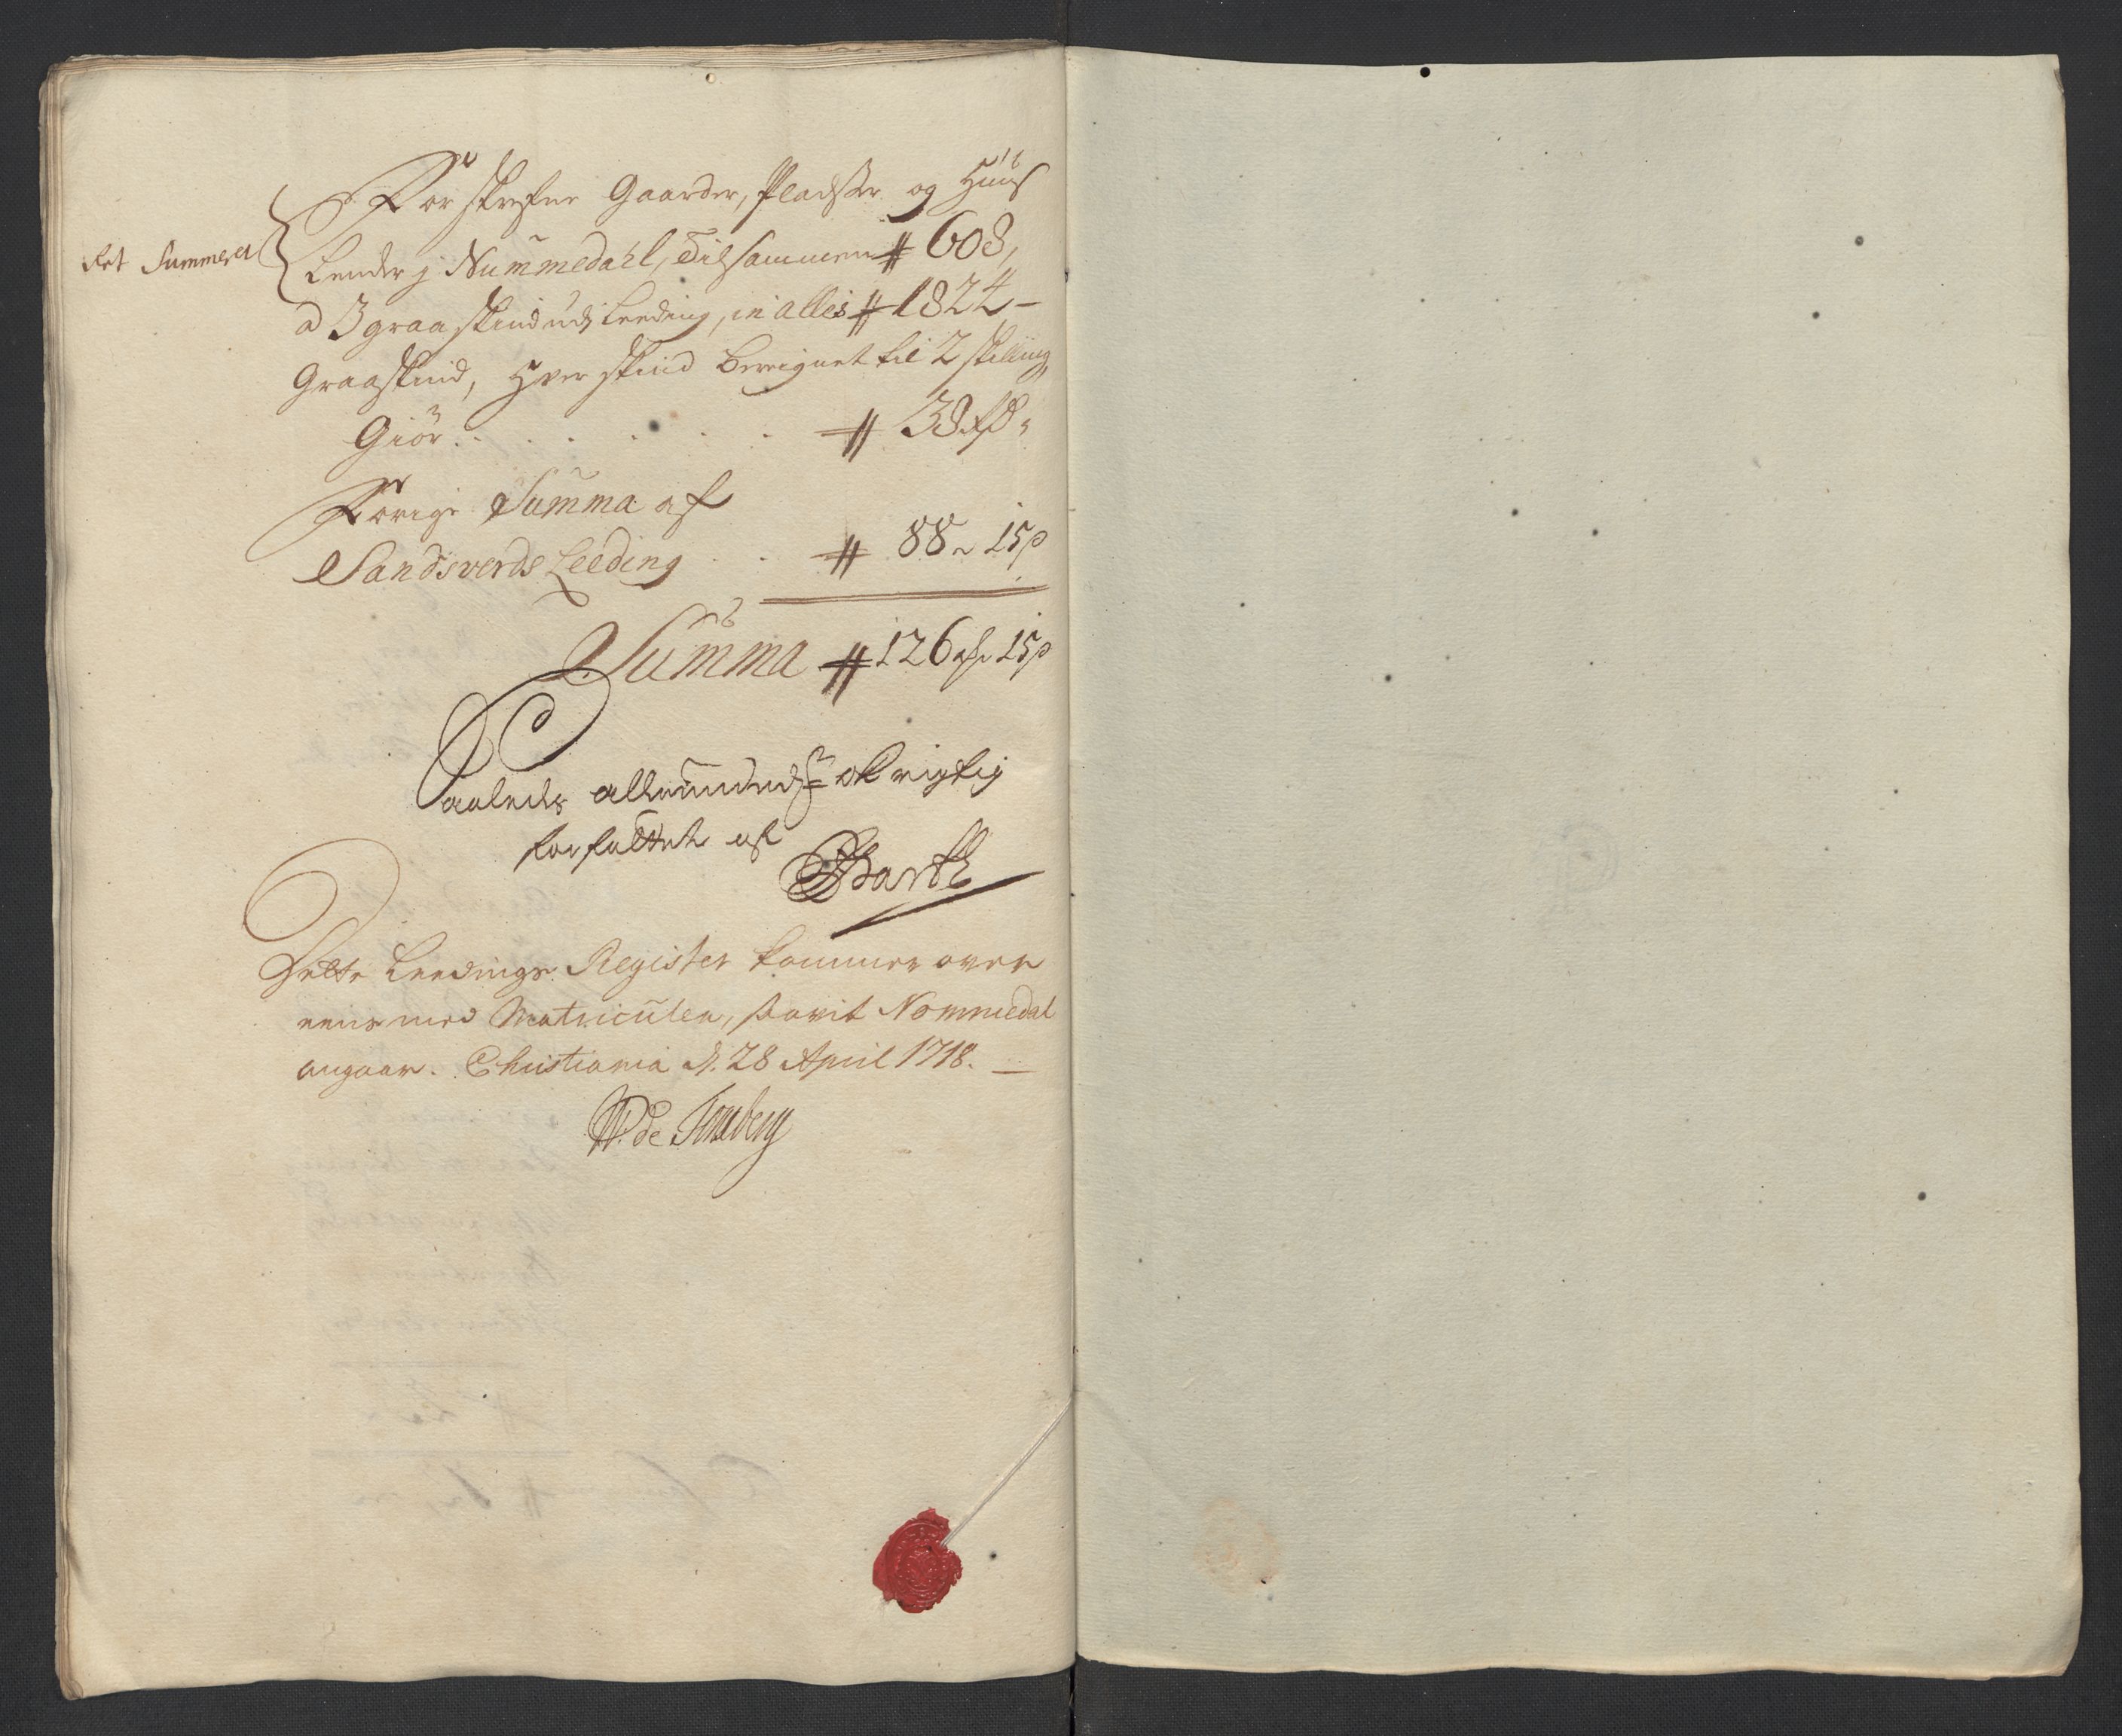 Ret Summeret
Forskrefne Gaarder, Pladszer og Huus
Lender j Nummedahl, Tilsammen # 608,
a 3 graaskind udj Leeding, in alles # 1824 -
Graaskind, Hver skind bereignet til 2 skilling,
Giör . . . . . . # 38 rd "
Forige Summa af
Sandsverds Leeding . . # 88 " 15 ß
Summa # 126 rd 15 ß
Saaledes allerunderdst og rigtig
forfattet af
Barth
Dette Leedings Register kommer over
eens med Matriculen, savit Nommedal
angaar. Christiania d. 28 April 1718. —
W. de Tonsberg